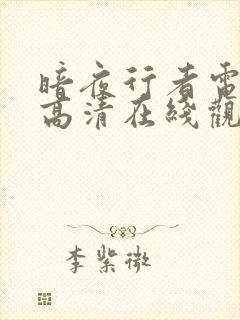 暗夜行者電
高清在綫觀
李紫微